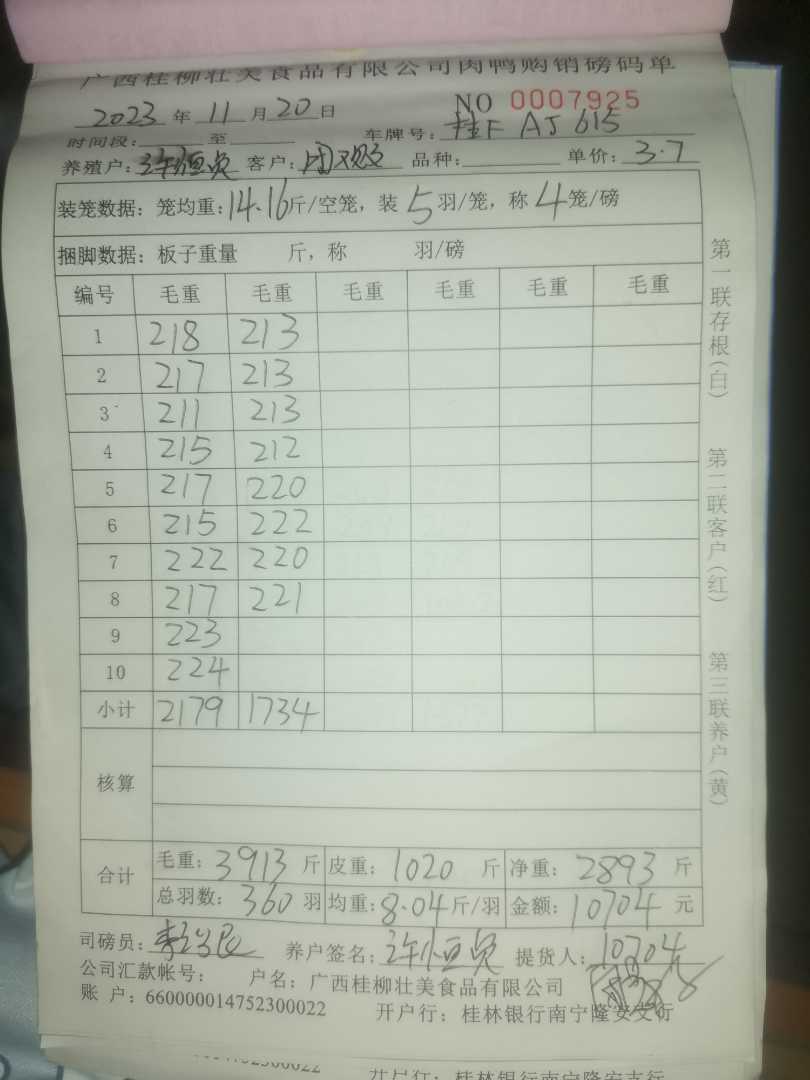 广西桂柳壮美食品有限公司肉鸭购销磅码单
2023年11月20日 NO 0007925
时间段: 至 车牌号: 桂F AJ 615
养殖户: 许恒贵 客户: 品种: 单价: 3.7
装笼数据: 笼均重: 14.16斤/空笼, 装5羽/笼, 称4笼/磅
捆脚数据: 板子重量 斤, 称 羽/磅
编号 毛重 毛重 毛重 毛重 毛重 毛重
1 218 213
2 217 213
3 211 213
4 215 212
5 217 220
6 215 222
7 222 220
8 217 221
9 223
10 224
小计 2179 1734
核算
合计 毛重: 3913斤 皮重: 1020斤 净重: 2893斤
总羽数: 360羽 均重: 8.04斤/羽 金额: 10704元
司磅员: 养户签名: 许恒贵 提货人: 10704
公司汇款帐号: 户名: 广西桂柳壮美食品有限公司
账 户: 660000014752300022 开户行: 桂林银行南宁隆安支行
第一联存根(白) 第二联客户(红) 第三联养户(黄)
52300022 开户行: 桂林银行南宁隆安支行